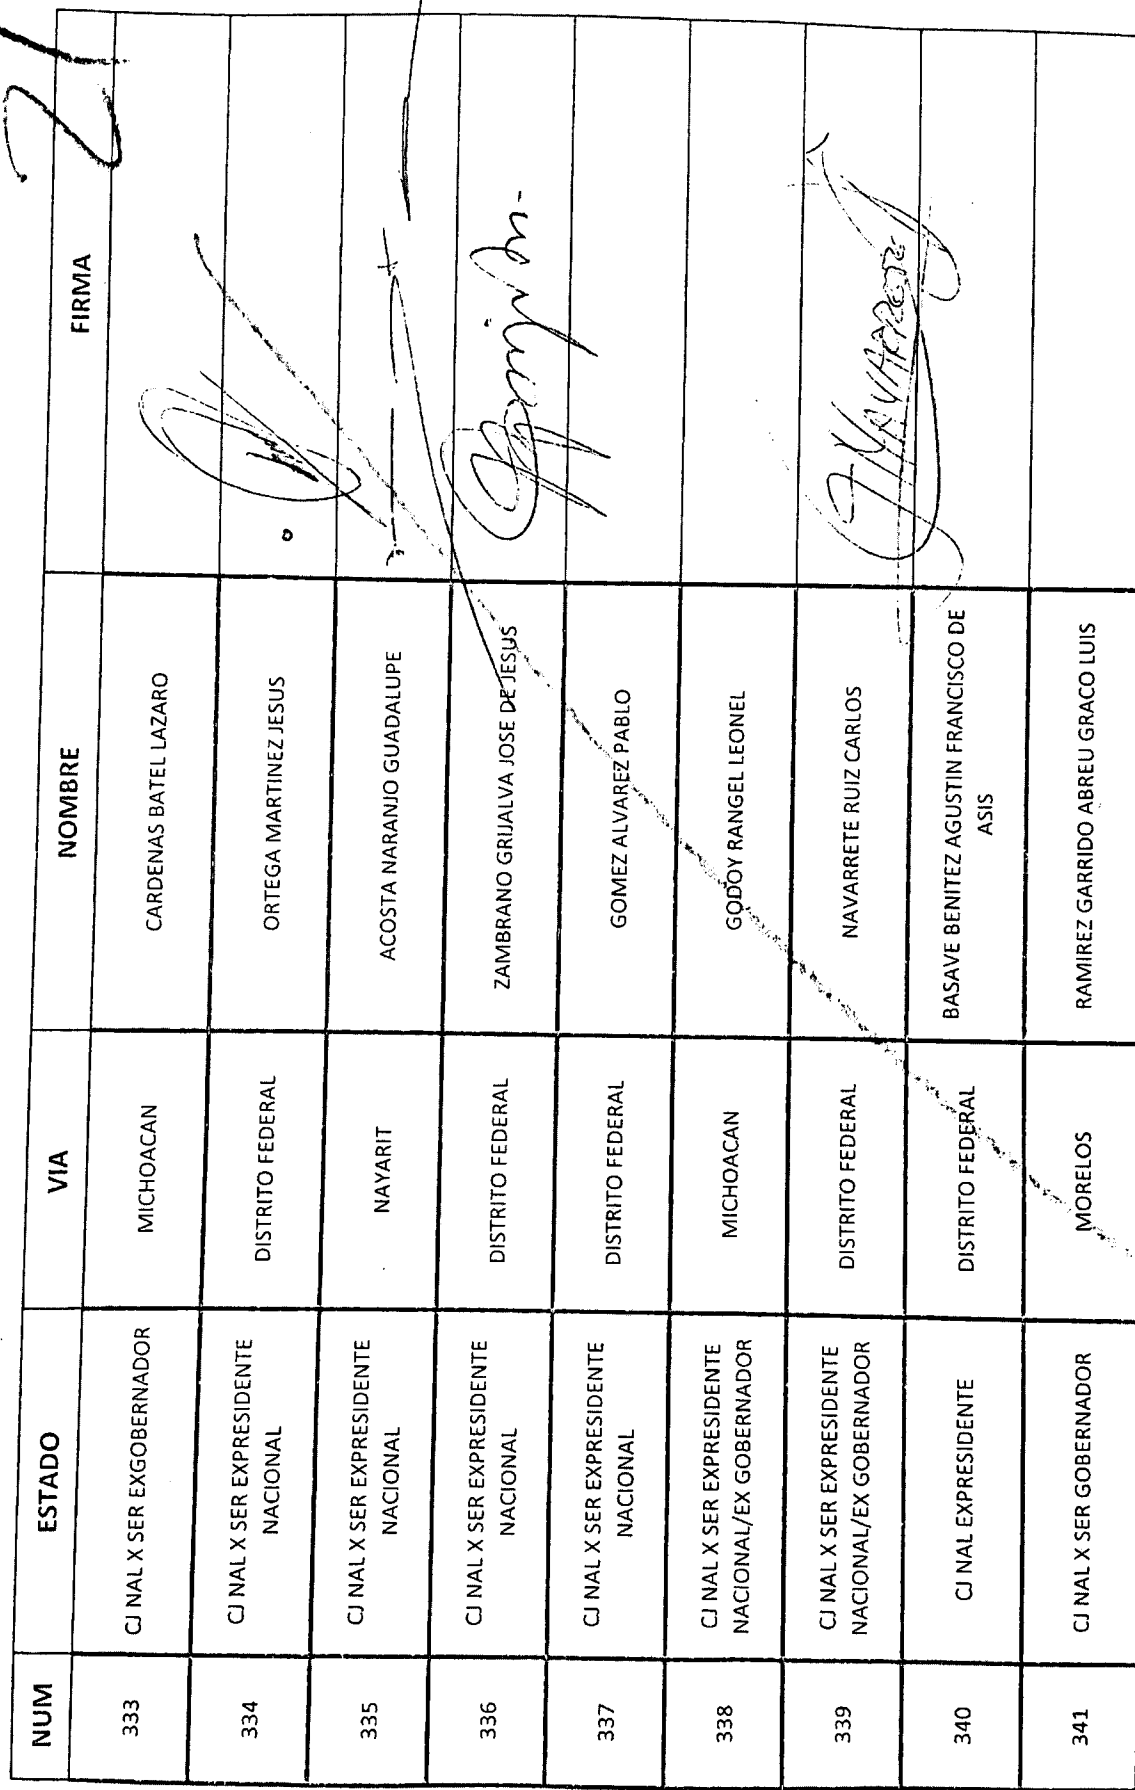 NUM ESTADO VIA NOMBRE FIRMA
333 CJ NAL X SER EXGOBERNADOR MICHOACAN CARDENAS BATEL LAZARO
334 CJ NAL X SER EXPRESIDENTE NACIONAL DISTRITO FEDERAL ORTEGA MARTINEZ JESUS
335 CJ NAL X SER EXPRESIDENTE NACIONAL NAYARIT ACOSTA NARANJO GUADALUPE
336 CJ NAL X SER EXPRESIDENTE NACIONAL DISTRITO FEDERAL ZAMBRANO GRIJALVA JOSE DE JESUS
337 CJ NAL X SER EXPRESIDENTE NACIONAL DISTRITO FEDERAL GOMEZ ALVAREZ PABLO
338 CJ NAL X SER EXPRESIDENTE NACIONAL/EX GOBERNADOR MICHOACAN GODOY RANGEL LEONEL
339 CJ NAL X SER EXPRESIDENTE NACIONAL/EX GOBERNADOR DISTRITO FEDERAL NAVARRETE RUIZ CARLOS NAVARRETE
340 CJ NAL EXPRESIDENTE DISTRITO FEDERAL BASAVE BENITEZ AGUSTIN FRANCISCO DE ASIS
341 CJ NAL X SER GOBERNADOR MORELOS RAMIREZ GARRIDO ABREU GRACO LUIS